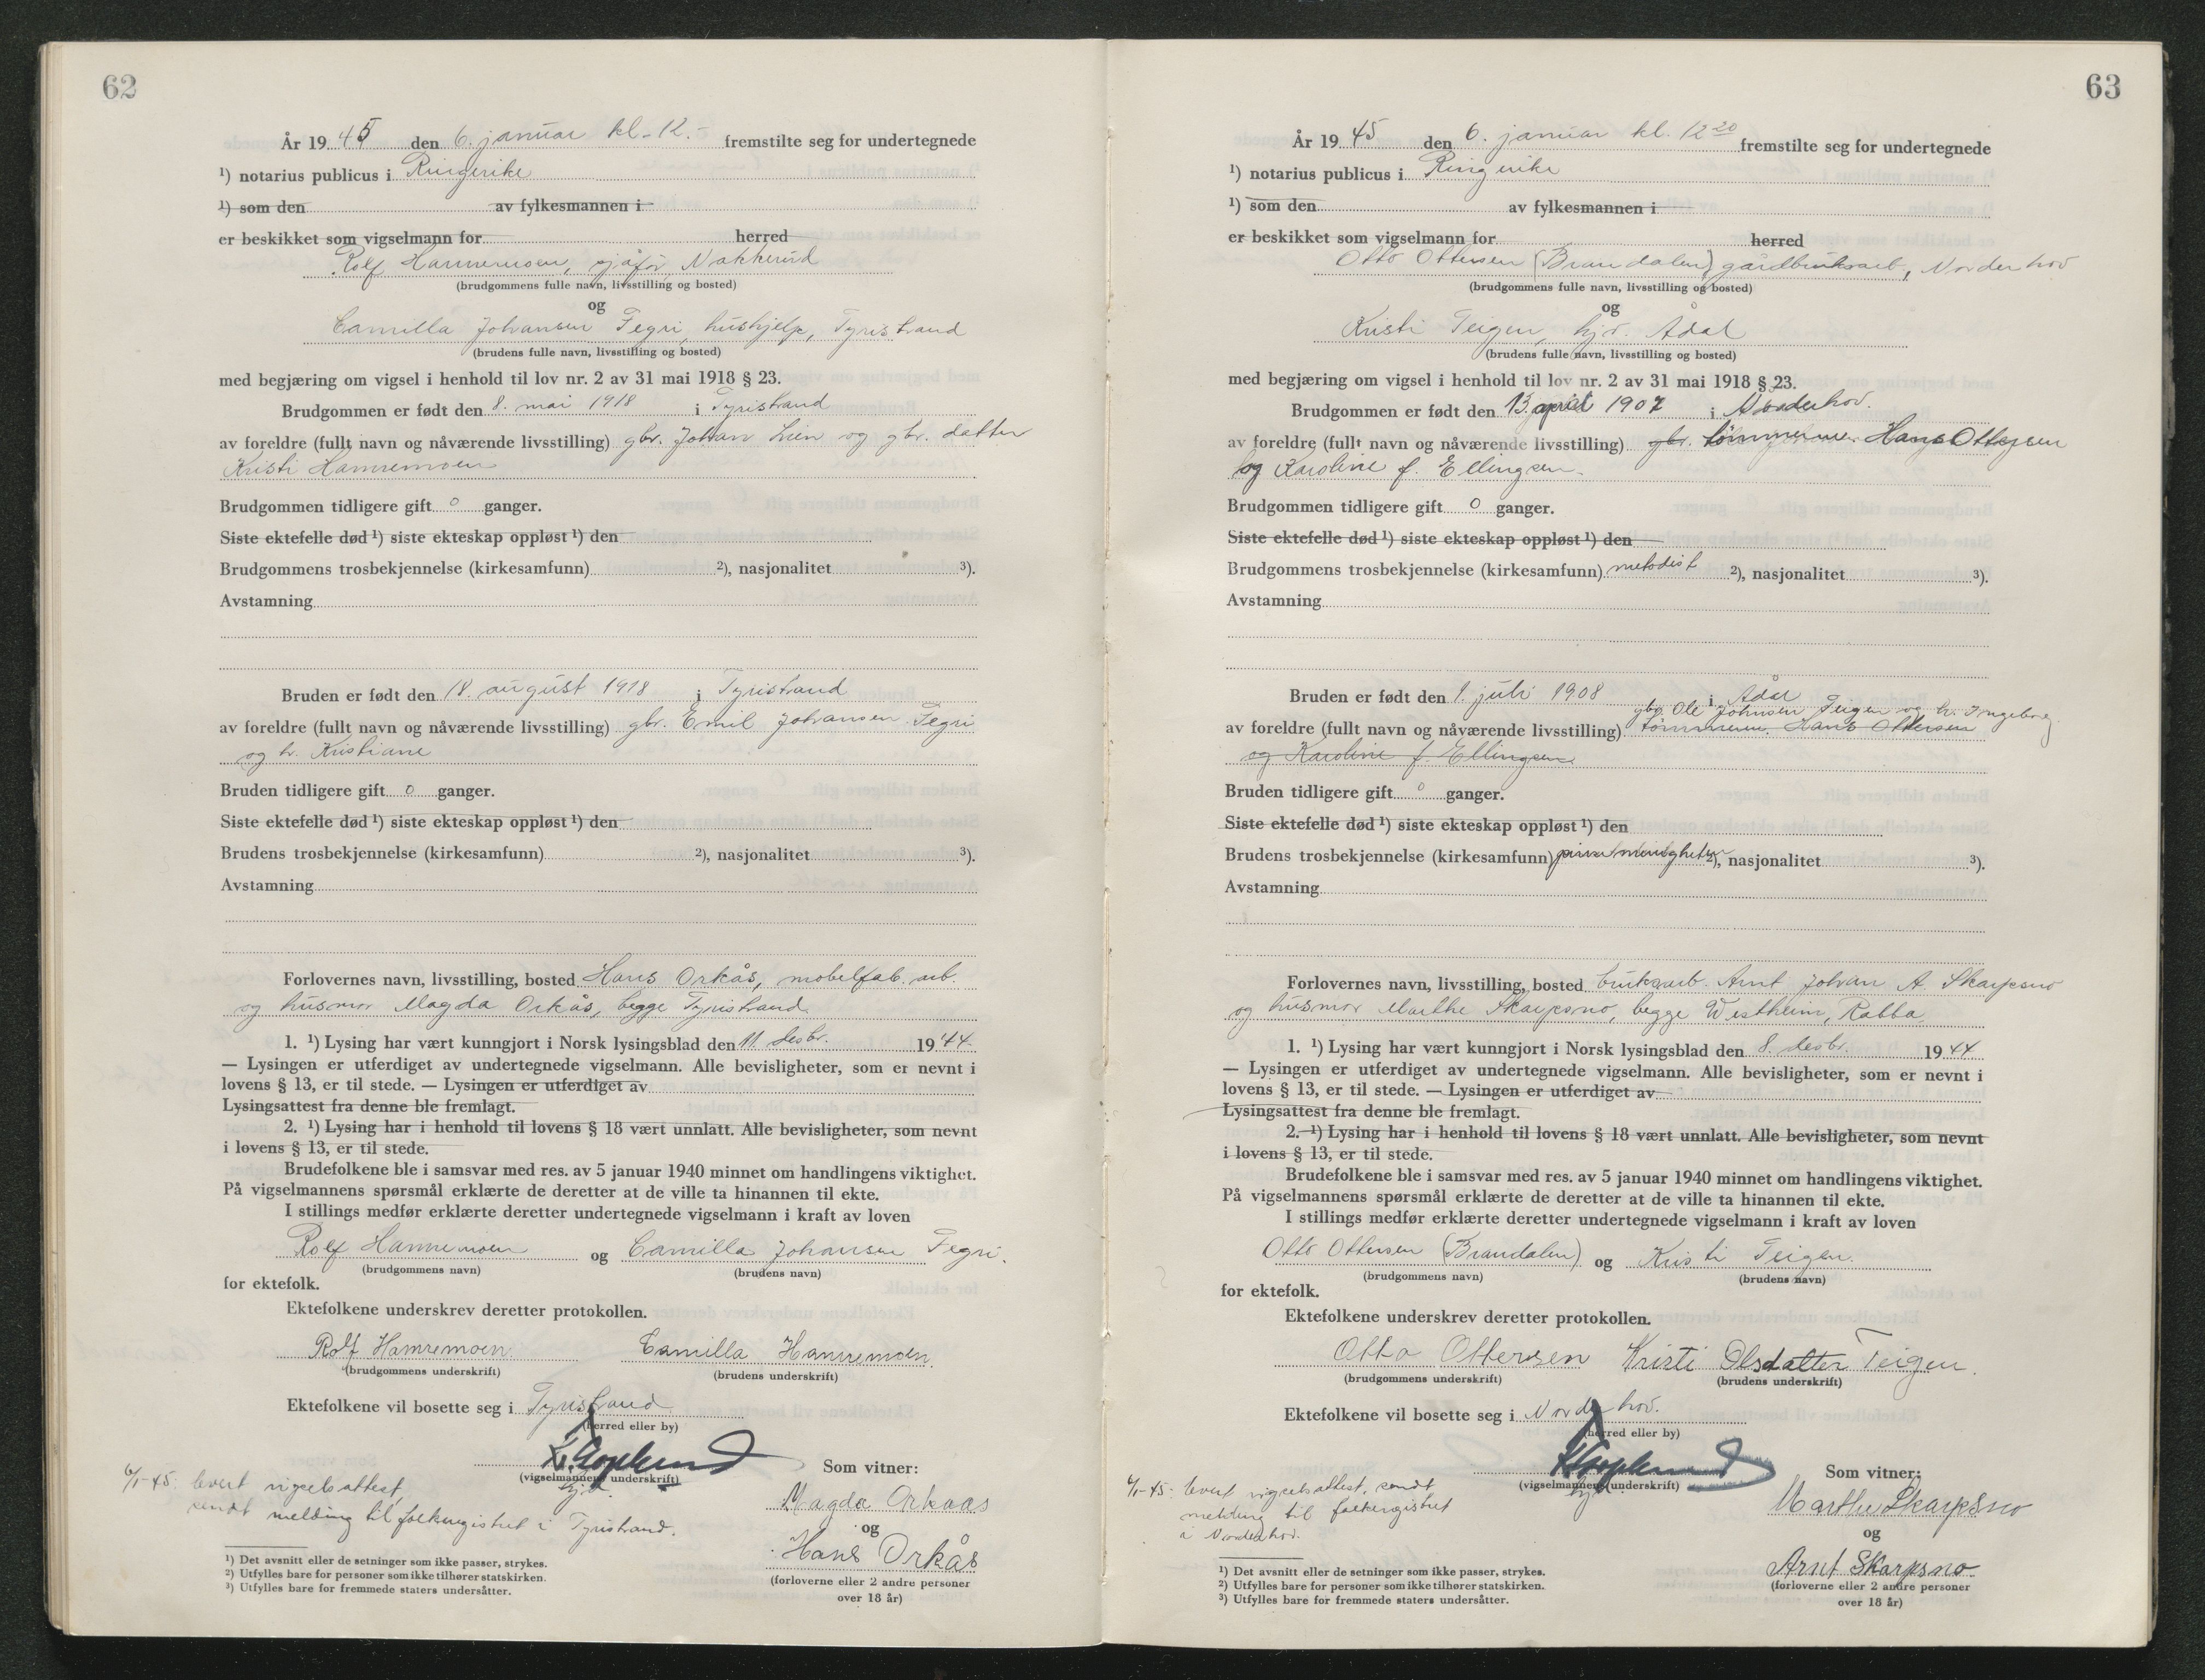 62
År 19 45 den 6. januar kl. 12.- fremstilte seg for undertegnede
¹) notarius publicus i Ringerike
¹) som den av fylkesmannen i
er beskikket som vigselmann for herred
Rolf Hamremoen, sjåfør, Nakkerud
(brudgommens fulle navn, livsstilling og bosted)
og
Camilla Johansen Fegri, hushjelp, Tyristrand
(brudens fulle navn, livsstilling og bosted)
med begjæring om vigsel i henhold til lov nr. 2 av 31 mai 1918 § 23.
Brudgommen er født den 8. mai 1918 i Tyristrand
av foreldre (fullt navn og nåværende livsstilling) gbr. Johan Lien og gbr. datter
Kristi Hamremoen
Brudgommen tidligere gift 0 ganger.
Siste ektefelle død ¹) siste ekteskap oppløst ¹) den
Brudgommens trosbekjennelse (kirkesamfunn) ²), nasjonalitet ³).
Avstamning
Bruden er født den 18. august 1918 i Tyristrand
av foreldre (fullt navn og nåværende livsstilling) gbr. Emil Johansen Fegri
og h. Kristiane
Bruden tidligere gift 0 ganger.
Siste ektefelle død ¹) siste ekteskap oppløst ¹) den
Brudens trosbekjennelse (kirkesamfunn) ²), nasjonalitet ³).
Avstamning
Forlovernes navn, livsstilling, bosted Hans Orkås, møbelfab. arb.
og husmor Magda Orkås, begge Tyristrand.
1. ¹) Lysing har vært kunngjort i Norsk lysingsblad den 11. desbr. 19 44.
— Lysingen er utferdiget av undertegnede vigselmann. Alle bevisligheter, som er nevnt i
lovens § 13, er til stede. — Lysingen er utferdiget av
Lysingsattest fra denne ble fremlagt.
2. ¹) Lysing har i henhold til lovens § 18 vært unnlatt. Alle bevisligheter, som nevnt
i lovens § 13, er til stede.
Brudefolkene ble i samsvar med res. av 5 januar 1940 minnet om handlingens viktighet.
På vigselmannens spørsmål erklærte de deretter at de ville ta hinannen til ekte.
I stillings medfør erklærte deretter undertegnede vigselmann i kraft av loven
Rolf Hamremoen og Camilla Johansen Fegri.
(brudgommens navn) (brudens navn)
for ektefolk.
Ektefolkene underskrev deretter protokollen.
Rolf Hamremoen. Camilla Hamremoen.
(brudgommens underskrift) (brudens underskrift)
Ektefolkene vil bosette seg i Tyristrand
(herred eller by)
(vigselmannens underskrift)
Som vitner:
6/1-45: levert vigselsattest,
sendt melding til folkeregistret i Tyristrand.
Magda Orkaas
og
Hans Orkås
(forloverne eller 2 andre personer
over 18 år)
¹) Det avsnitt eller de setninger som ikke passer, strykes.
²) Utfylles bare for personer som ikke tilhører statskirken.
³) Utfylles bare for fremmede staters undersåtter.
63
År 19 45 den 6. januar kl. 12 20 fremstilte seg for undertegnede
¹) notarius publicus i Ringerike
¹) som den av fylkesmannen i
er beskikket som vigselmann for herred
Otto Ottersen (Brandalen) gårdbruksarb, Norderhov
(brudgommens fulle navn, livsstilling og bosted)
og
Kristi Teigen, hjv. Ådal
(brudens fulle navn, livsstilling og bosted)
med begjæring om vigsel i henhold til lov nr. 2 av 31 mai 1918 § 23.
Brudgommen er født den 13. april 1907 i Norderhov.
av foreldre (fullt navn og nåværende livsstilling) gbr. tømmerm. Hans Ottersen
og Karoline f. Ellingsen.
Brudgommen tidligere gift 0 ganger.
Siste ektefelle død ¹) siste ekteskap oppløst ¹) den
Brudgommens trosbekjennelse (kirkesamfunn) metodist ²), nasjonalitet ³).
Avstamning
Bruden er født den 1. juli 1908 i Ådal
gbr. Ole Johnsen Teigen og h. Ingeborg
av foreldre (fullt navn og nåværende livsstilling) tømmerm. Hans Ottersen
og Karoline f. Ellingsen.
Bruden tidligere gift 0 ganger.
Siste ektefelle død ¹) siste ekteskap oppløst ¹) den
Brudens trosbekjennelse (kirkesamfunn) pinsemenigheten ²), nasjonalitet ³).
Avstamning
Forlovernes navn, livsstilling, bosted bruksarb. Arnt Johan A. Skarpsno
og husmor Marthe Skarpsno, begge Westheim, Rabba.
1. ¹) Lysing har vært kunngjort i Norsk lysingsblad den 8. desbr. 19 44
— Lysingen er utferdiget av undertegnede vigselmann. Alle bevisligheter, som er nevnt i
lovens § 13, er til stede. — Lysingen er utferdiget av
Lysingsattest fra denne ble fremlagt.
2. ¹) Lysing har i henhold til lovens § 18 vært unnlatt. Alle bevisligheter, som nevnt
i lovens § 13, er til stede.
Brudefolkene ble i samsvar med res. av 5 januar 1940 minnet om handlingens viktighet.
På vigselmannens spørsmål erklærte de deretter at de ville ta hinannen til ekte.
I stillings medfør erklærte deretter undertegnede vigselmann i kraft av loven
Otto Ottersen (Brandalen) og Kristi Teigen.
(brudgommens navn) (brudens navn)
for ektefolk.
Ektefolkene underskrev deretter protokollen.
Otto Ottersen Kristi Olsdatter Teigen.
(brudgommens underskrift) (brudens underskrift)
Ektefolkene vil bosette seg i Norderhov.
(herred eller by)
(vigselmannens underskrift)
Som vitner:
6/1-45: levert vigselsattest, sendt
melding til folkeregistret
i Norderhov.
Marthe Skarpsno
og
Arnt Skarpsno
(forloverne eller 2 andre personer
over 18 år)
¹) Det avsnitt eller de setninger som ikke passer, strykes.
²) Utfylles bare for personer som ikke tilhører statskirken.
³) Utfylles bare for fremmede staters undersåtter.